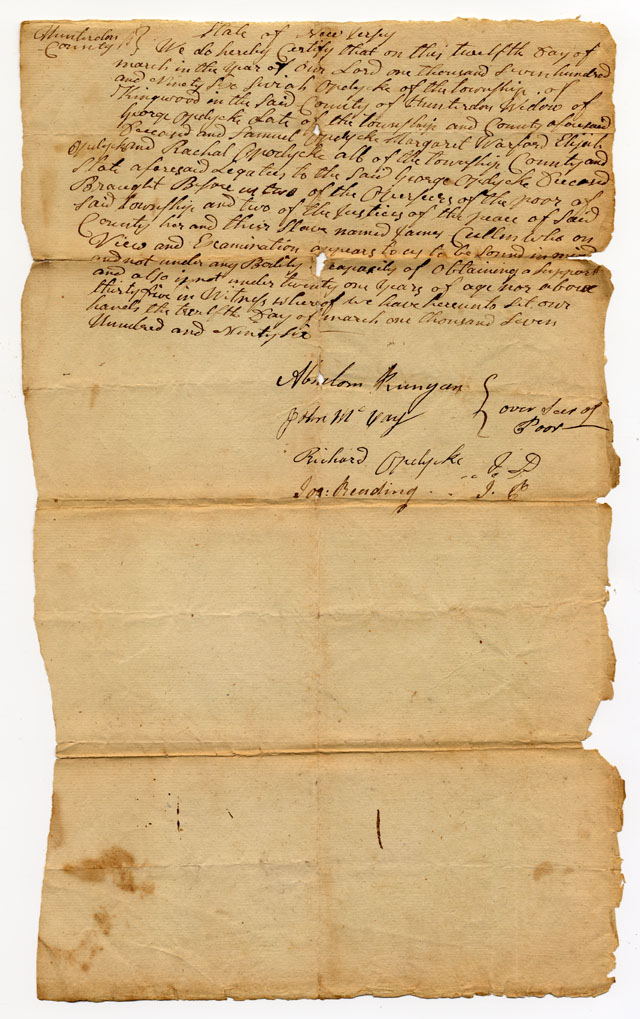 State of New Jersey
Hunterdon
County
We do hereby Certify that on this twelfth Day of
march in the Year of Our Lord one thousand Seven hundred
and Ninety Six Opdycke of the township of
Kingwood in the Said County of Hunterdon Widow of
George Opdycke Late of the township and County aforesaid
Deceased and Samuel Opdycke Margaret Warford Elijah
Opdycke and Rachal Opdycke all of the township County and
State aforesaid Legatees to the Said George Opdycke Deceased
Braught Before us two of the Overseers of the poor of
Said township and two of the Justices of the peace of Said
County her and their Slave named James Cullen who on
View and Examination appears to us to be Sound in mind
and not under any Bodily incapacity of obtaining a Support
and also is not under twenty one Years of age nor above
thirty five in Witness whereof we have hereunto Set our
hands the twelfth Day of march one thousand Seven
Hundred and Ninty Six
Abselom Runyan
John Mc
over Seers of
Poor
Richard Opdycke J. P
Jos: Reading J. P